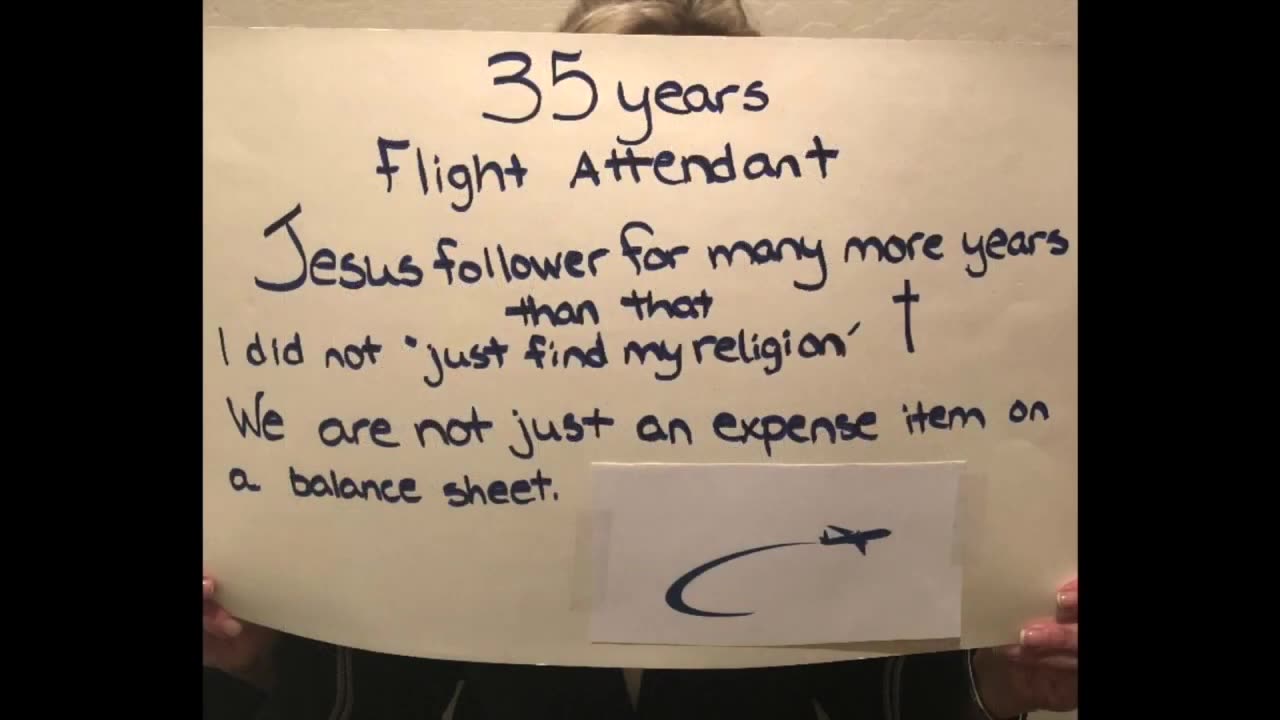 35 years
Flight Attendant
Jesus follower for many more years
than that
I did not "just find my religion'
We are not just an expense item on
a balance sheet.